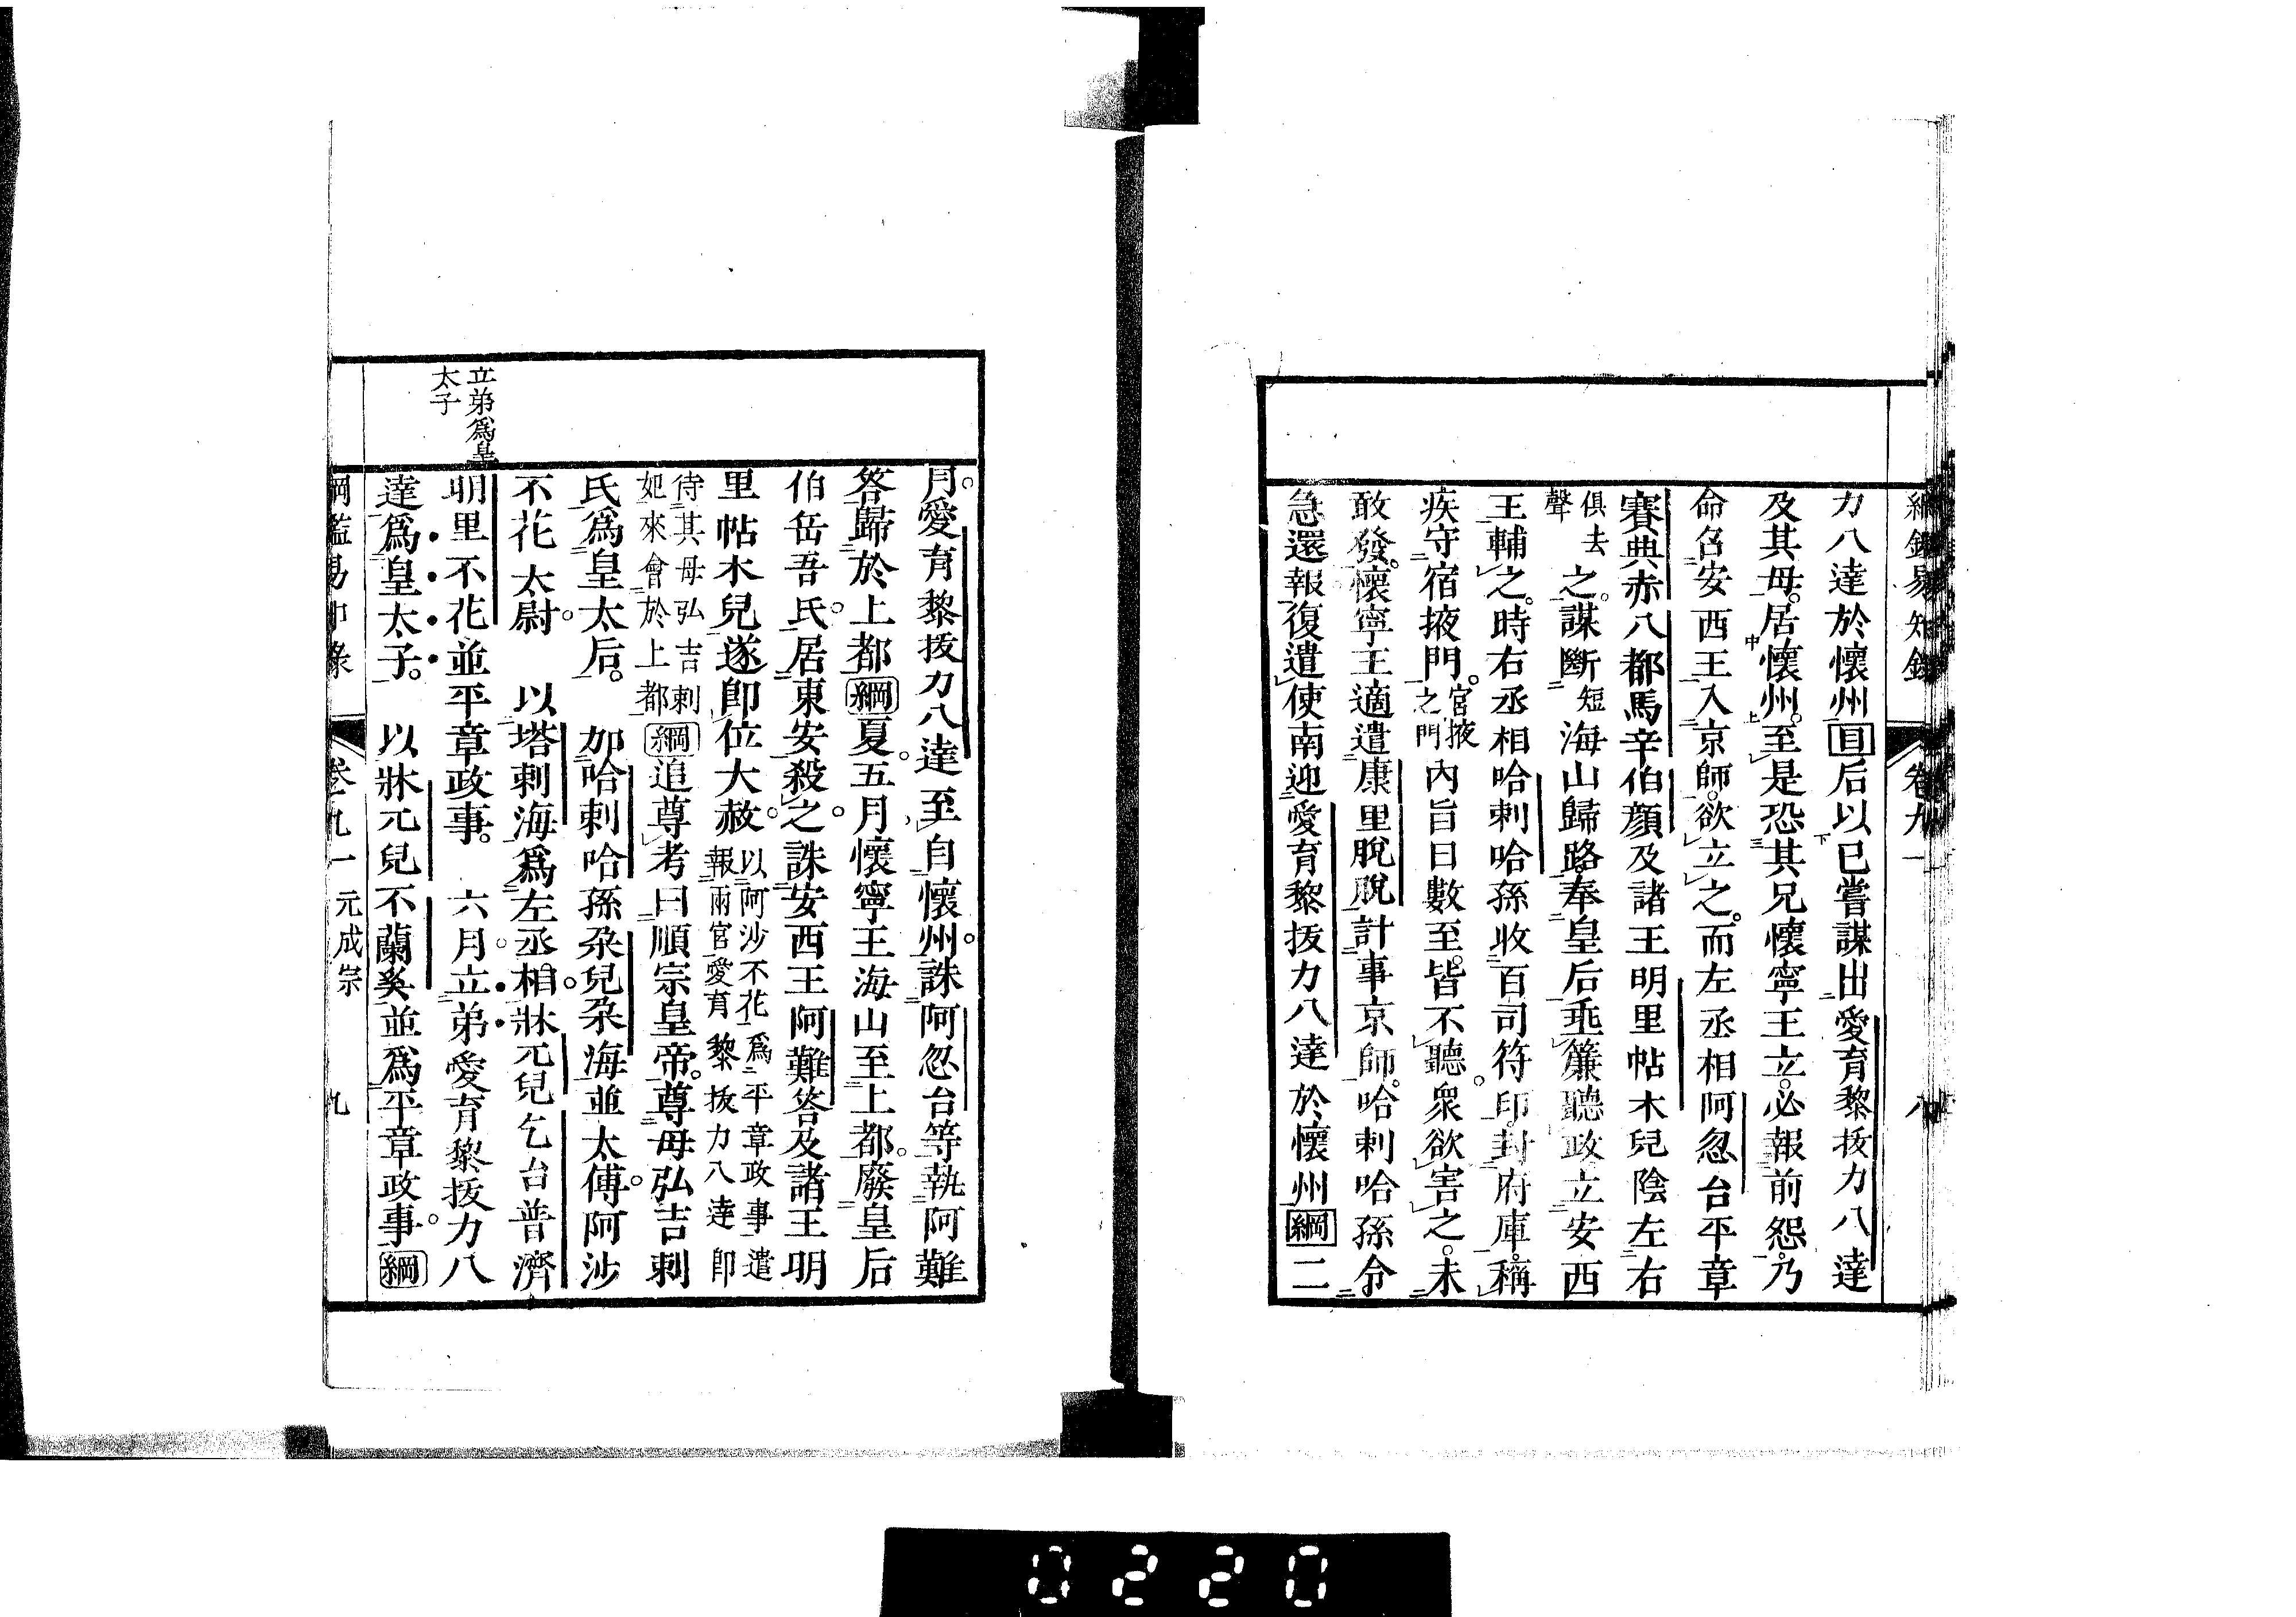 綱鑑易知錄 卷九一 八
力八達於懷州目后以已嘗謀出愛育黎拔力八達
及其母居懷州至是恐其兄懷寧王立必報前怨乃
命召安西王入京師欲立之而左丞相阿忽台平章
賽典赤八都馬辛伯顏及諸王明里帖木兒陰左右
俱去聲之謀斷短海山歸路奉皇后垂簾聽政立安西
王輔之時右丞相哈剌哈孫收百司符印封府庫稱
疾守宿掖門宮掖之門內旨日數至皆不聽衆欲害之未
敢發懷寧王適遣康里脫脫計事京師哈剌哈孫令
急還報復遣使南迎愛育黎拔力八達於懷州綱二
月愛育黎拔力八達至自懷州誅阿忽台等執阿難
答歸於上都綱夏五月懷寧王海山至上都廢皇后
伯岳吾氏居東安殺之誅安西王阿難答及諸王明
里帖木兒遂卽位大赦以阿沙不花爲平章政事遣報兩宮愛育黎拔力八達卽
侍其母弘吉剌妃來會於上都綱追尊考曰順宗皇帝尊母弘吉剌
氏爲皇太后 加哈剌哈孫朶兒朶海並太傅阿沙
不花太尉 以塔剌海爲左丞相牀兀兒乞台普濟
明里不花並平章政事 六月立弟愛育黎拔力八
達爲皇太子 以牀兀兒不蘭奚並爲平章政事綱
立弟爲皇
太子
綱鑑易知錄 卷九一 元成宗 九
0220